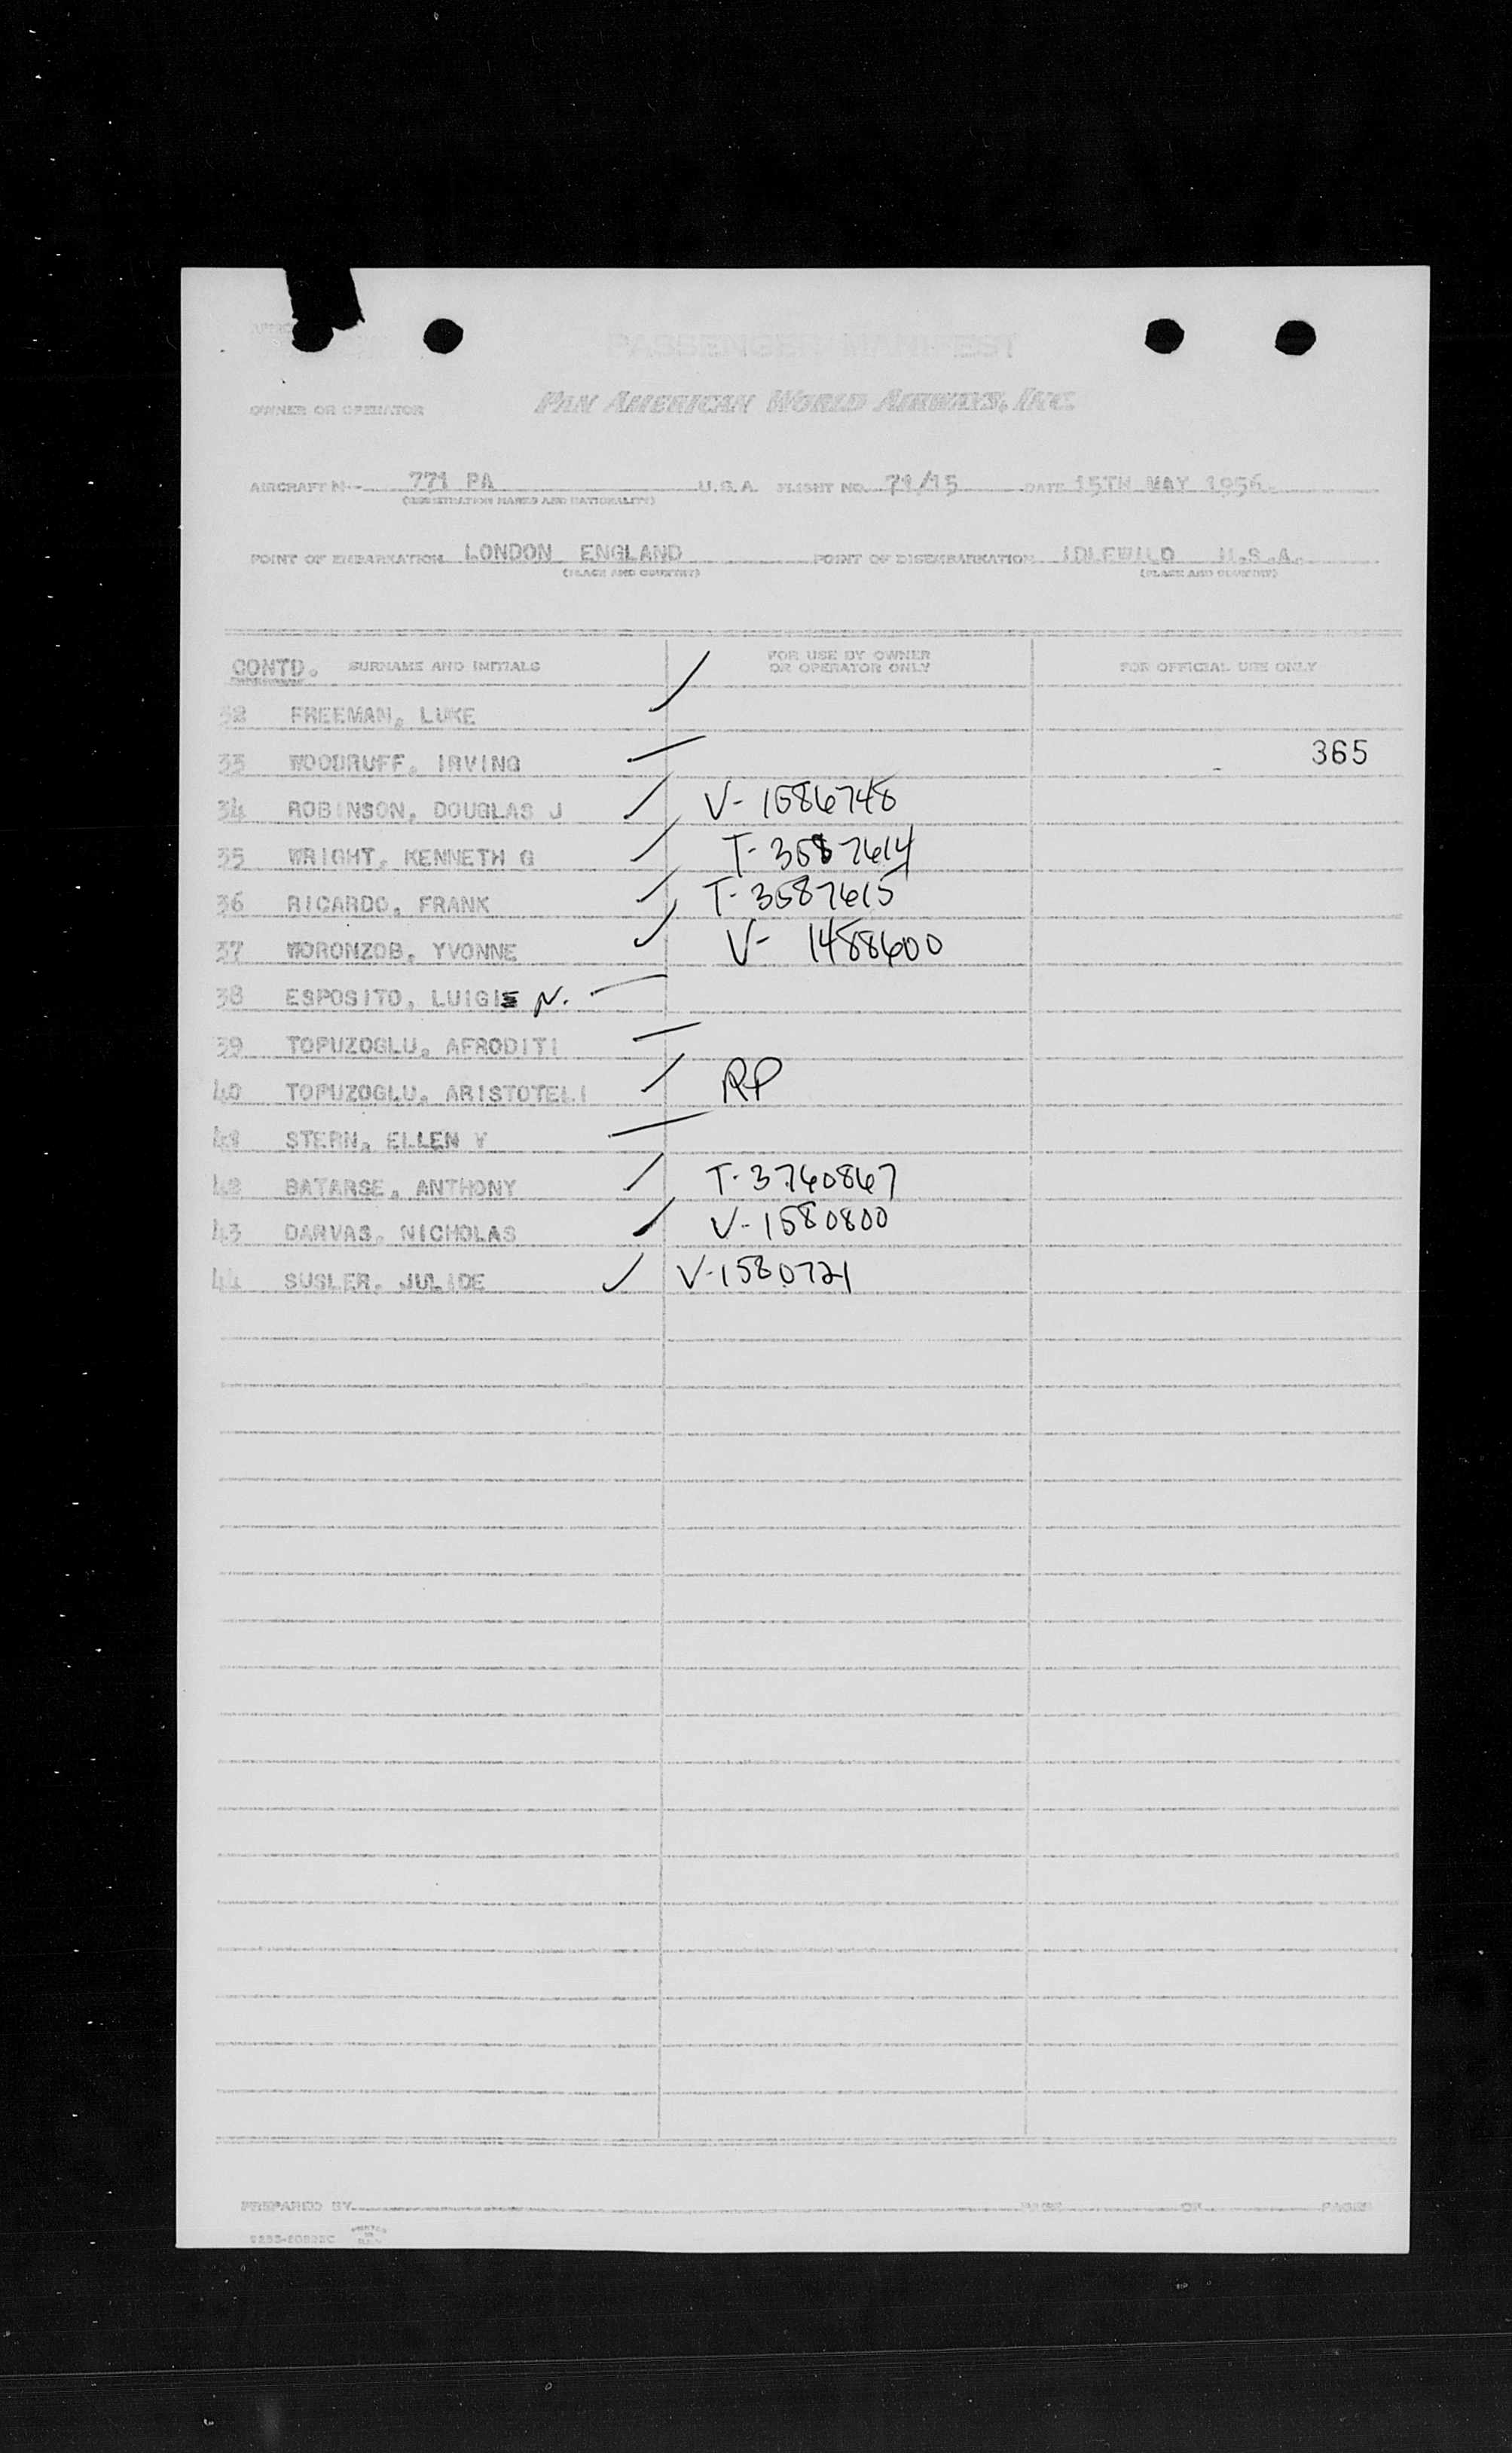 PASSENGER MANIFEST
OWNER OR OPERATOR PAN AMERICAN WORLD AIRWAYS, INC.
AIRCRAFT N-- 771 PA U.S.A. FLIGHT NO. 71/15 DATE 15TH MAY 1956.
(REGISTRATION MARKS AND NATIONALITY)
POINT OF EMBARKATION LONDON ENGLAND POINT OF DISEMBARKATION IDLEWILD U.S.A.
(PLACE AND COUNTRY) (PLACE AND COUNTRY)
CONTD. SURNAME AND INITIALS FOR USE BY OWNER OR OPERATOR ONLY FOR OFFICIAL USE ONLY
32 FREEMAN, LUKE
33 WOODRUFF, IRVING 365
34 ROBINSON, DOUGLAS J V-1586748
35 WRIGHT, KENNETH G T-3587614
36 RICARDO, FRANK T-3587615
37 WORONZOB, YVONNE V- 1488600
38 ESPOSITO, LUIGI N.
39 TOPUZOGLU, AFRODITI
40 TOPUZOGLU, ARISTOTELI RP
41 STERN, ELLEN V
42 BATARSE, ANTHONY T-3760867
43 DARVAS, NICHOLAS V-1580800
44 SUSLER, JULIDE V-1580721
PREPARED BY PAGE OF PAGES